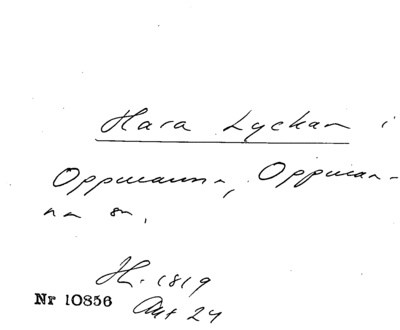 Hara Lyckan i
Oppmanna, Oppman-
na sn,
H. 1819
Nr 10856
Akt 24